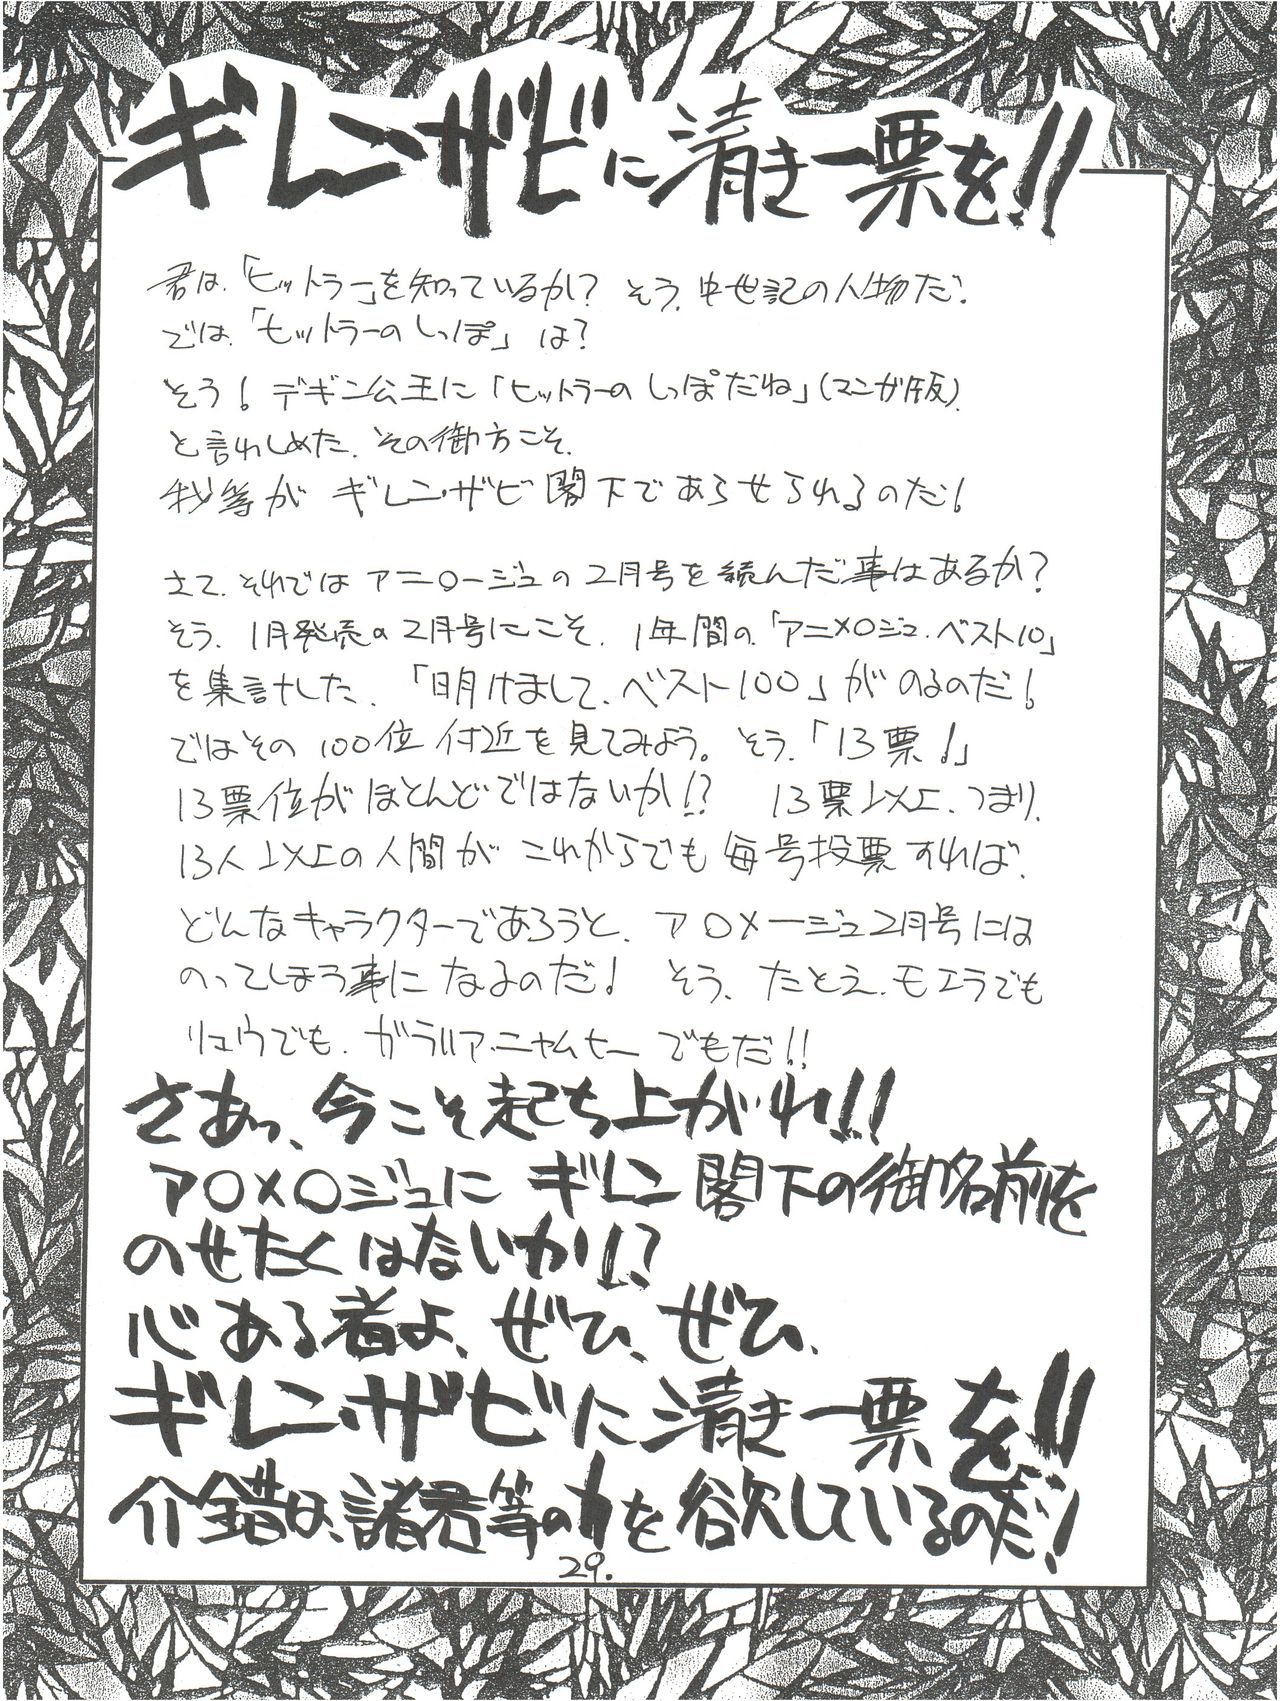 ギレン・ザビに清き一票を!!
君は、「ヒットラー」を知っているか? そう、中世記の人物だ.
では、「ヒットラーのしっぽ」は?
そう! デギン公王に「ヒットラーのしっぽだね」(マンガ版).
と言わしめた、その御方こそ、
我等がギレン・ザビ閣下であらせられるのだ!
さて、それではアニ○ージュの2月号を読んだ事はあるか?
そう、1月発売の2月号にこそ、1年間の「アニメ○ジュ.ベスト10」
を集計した、「明けまして、ベスト100」がのるのだ!
ではその100位付近を見てみよう。そう、「13票!」
13票位がほとんどではないか!? 13票以上、つまり、
13人以上の人間がこれからでも毎号投票すれば、
どんなキャラクターであろうと、ア○メージュ2月号には
のってしまう事になるのだ! そう、たとえ、モエラでも
リュウでも、ガラリア・ニャムヒーでもだ!!
さあっ、今こそ起ち上がれ!!
ア○メ○ジュにギレン閣下の御名前を
のせたくはないか!?
心ある者よ、ぜひ、ぜひ、
ギレン・ザビに清き一票を!!
介錯は、諸君等の力を欲しているのだ!
29.